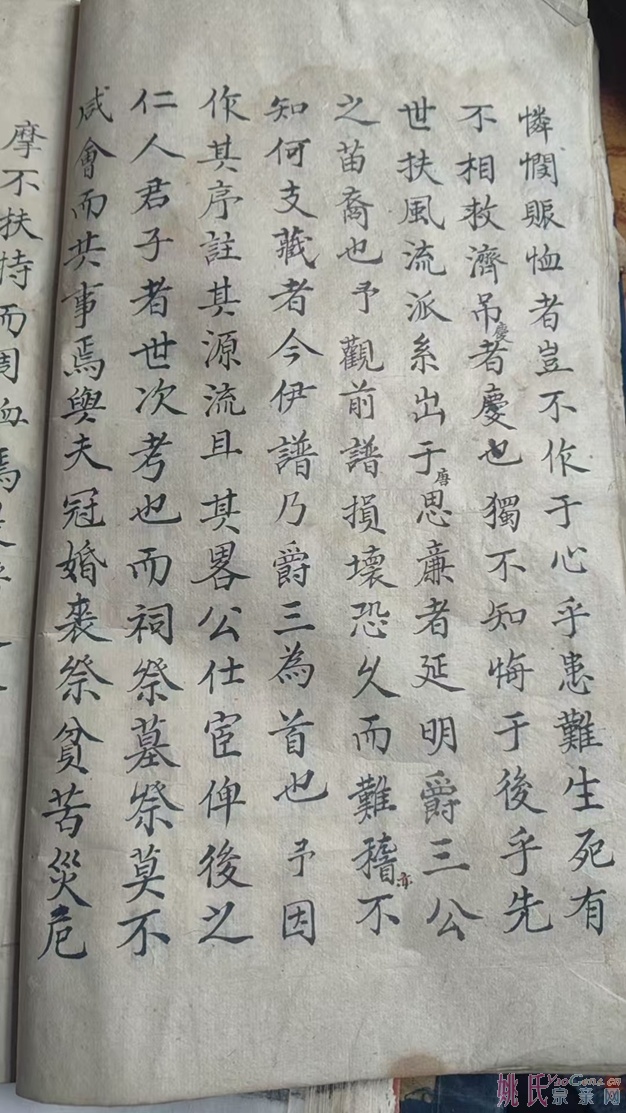 憐憫賑恤者豈不怍于心乎患難生死有
不相救濟吊慶者慶也獨不知悔于後乎先
世扶風流派系出于唐思亷者延明爵三公
之苗裔也予觀前譜損壞恐久而難稽亦不
知何支藏者今伊譜乃爵三為首也予因
作其序註其源流且其畧公仕宦俾後之
仁人君子者世次考也而祠祭墓祭莫不
咸會而共事焉與夫冠婚喪祭貧苦災危
摩不扶持而周恤焉
姚氏宗亲网
YaoGens.cn